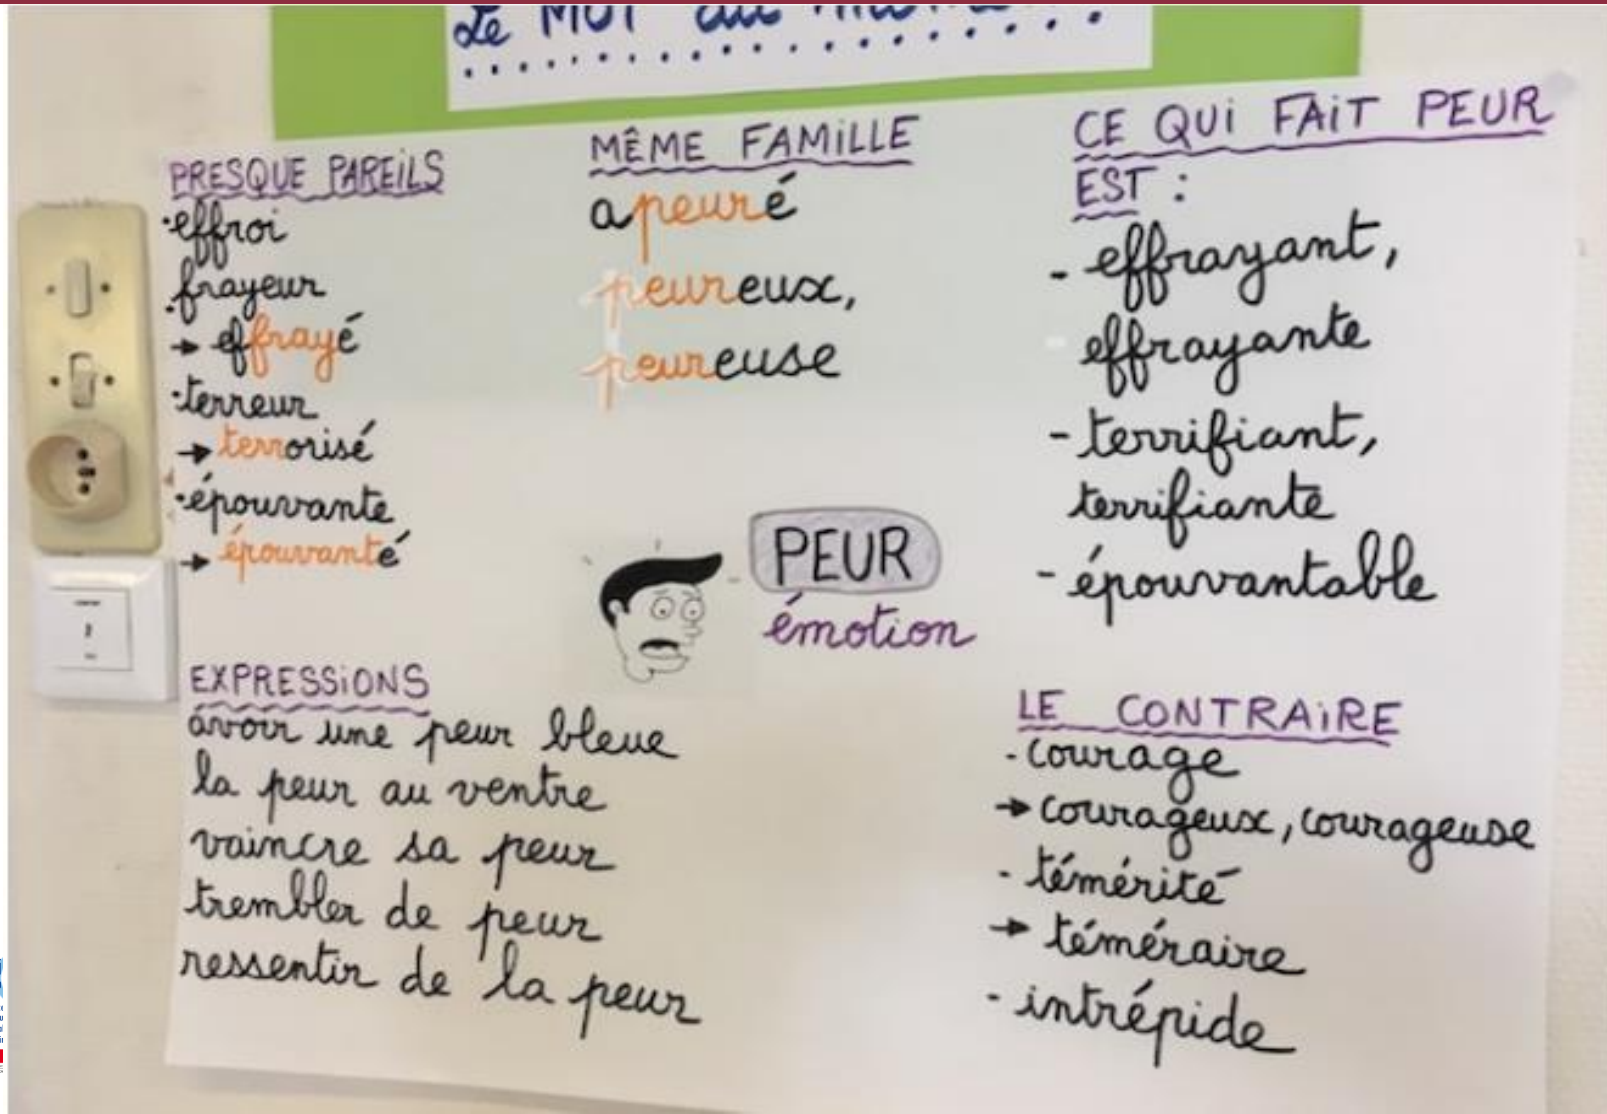 Le MOT du
PRESQUE PAREILS
•effroi
•frayeur
→ effrayé
•terreur
→ terrorisé
•épouvante
→ épouvanté
MÊME FAMILLE
apeuré
peureux,
peureuse
CE QUI FAIT PEUR
EST :
- effrayant,
effrayante
- terrifiant,
terrifiante
- épouvantable
PEUR
émotion
EXPRESSIONS
avoir une peur bleue
la peur au ventre
vaincre sa peur
trembler de peur
ressentir de la peur
LE CONTRAIRE
- courage
→ courageux, courageuse
- témérité
→ téméraire
- intrépide